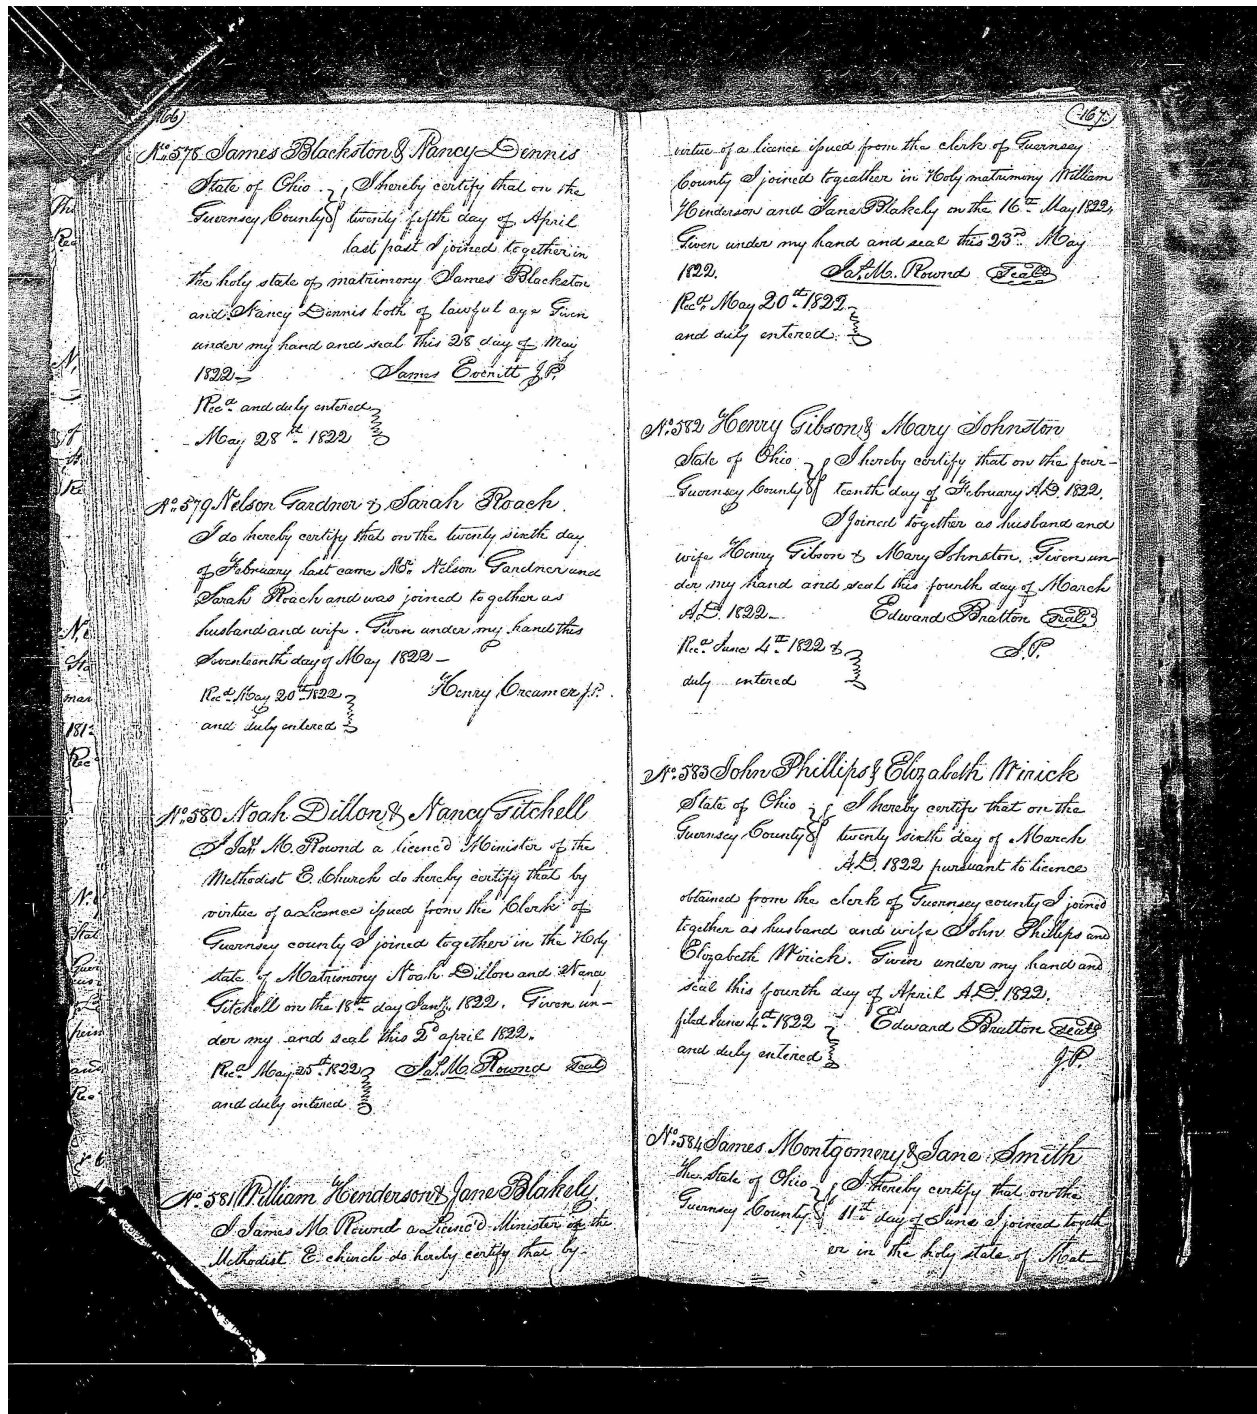 166
No. 578 James Blackston & Nancy Dennis
State of Ohio } I hereby certify that on the
Guernsey County } twenty fifth day of April
last past I joined together in
the holy state of matrimony James Blackston
and Nancy Dennis both of lawful age Given
under my hand and seal this 28 day of May
1822 – James Evenitt J.P.
Recd. and duly entered
May 28th 1822
No. 579 Nelson Gardner & Sarah Roach.
I do hereby certify that on the twenty sixth day
of February last came Mr. Nelson Gardner and
Sarah Roach and was joined together as
husband and wife. Given under my hand this
Seventeenth day of May 1822 –
Recd. May 20th 1822 Henry Creamer J.P.
and duly entered
No. 580 Noah Dillon & Nancy Gitchell
I Jas. M. Rownd a licenc'd Minister of the
Methodist E. Church do hereby certify that by
virtue of a Licence issued from the Clerk of
Guernsey county I joined together in the Holy
state of Matrimony Noah Dillon and Nancy
Gitchell on the 18th day Jany. 1822. Given un-
der my and seal this 2d april 1822.
Recd. May 25th 1822 Jas. M. Rownd Seal
and duly entered
No. 581 William Henderson & Jane Blakely.
I James M. Rownd a Licenc'd Minister of the
Methodist E. church do hereby certify that by
167
virtue of a licence issued from the clerk of Guernsey
County I joined togeather in Holy matrimony William
Henderson and Jane Blakely on the 16th May 1822,
Given under my hand and seal this 23rd. May
1822. Jas. M. Rownd Seal
Recd. May 20th 1822
and duly entered
No. 582 Henry Gibson & Mary Johnston
State of Ohio } I hereby certify that on the four-
Guernsey County } teenth day of February A.D. 1822.
I joined together as husband and
wife Henry Gibson & Mary Johnston. Given un-
der my hand and seal this fourth day of March
A.D. 1822 – Edward Bratton Seal
Recd. June 4th 1822 & J.P.
duly entered
No. 583 John Phillips & Elizabeth Wirick
State of Ohio } I hereby certify that on the
Guernsey County } twenty sixth day of March
A.D. 1822 pursuant to licence
obtained from the clerk of Guernsey county I joined
together as husband and wife John Phillips and
Elizabeth Wirick. Given under my hand and
seal this fourth day of April A.D. 1822.
filed June 4th 1822 Edward Bratton Seal
and duly entered J.P.
No. 584 James Montgomery & Jane Smith
The State of Ohio } I hereby certify that on the
Guernsey County } 11th day of June I joined togeth
er in the holy state of Mat-